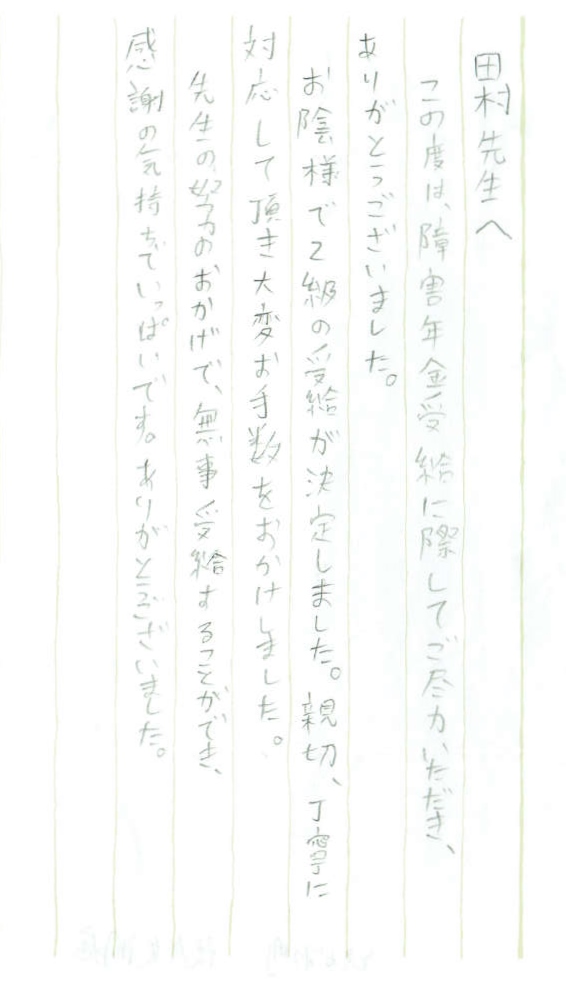 田村先生へ
この度は、障害年金受給に際してご尽力いただき、
ありがとうございました。
お陰様で2級の受給が決定しました。親切、丁寧に
対応して頂き大変お手数をおかけしました。
先生の努力のおかげで、無事受給することができ、
感謝の気持ちでいっぱいです。ありがとうございました。